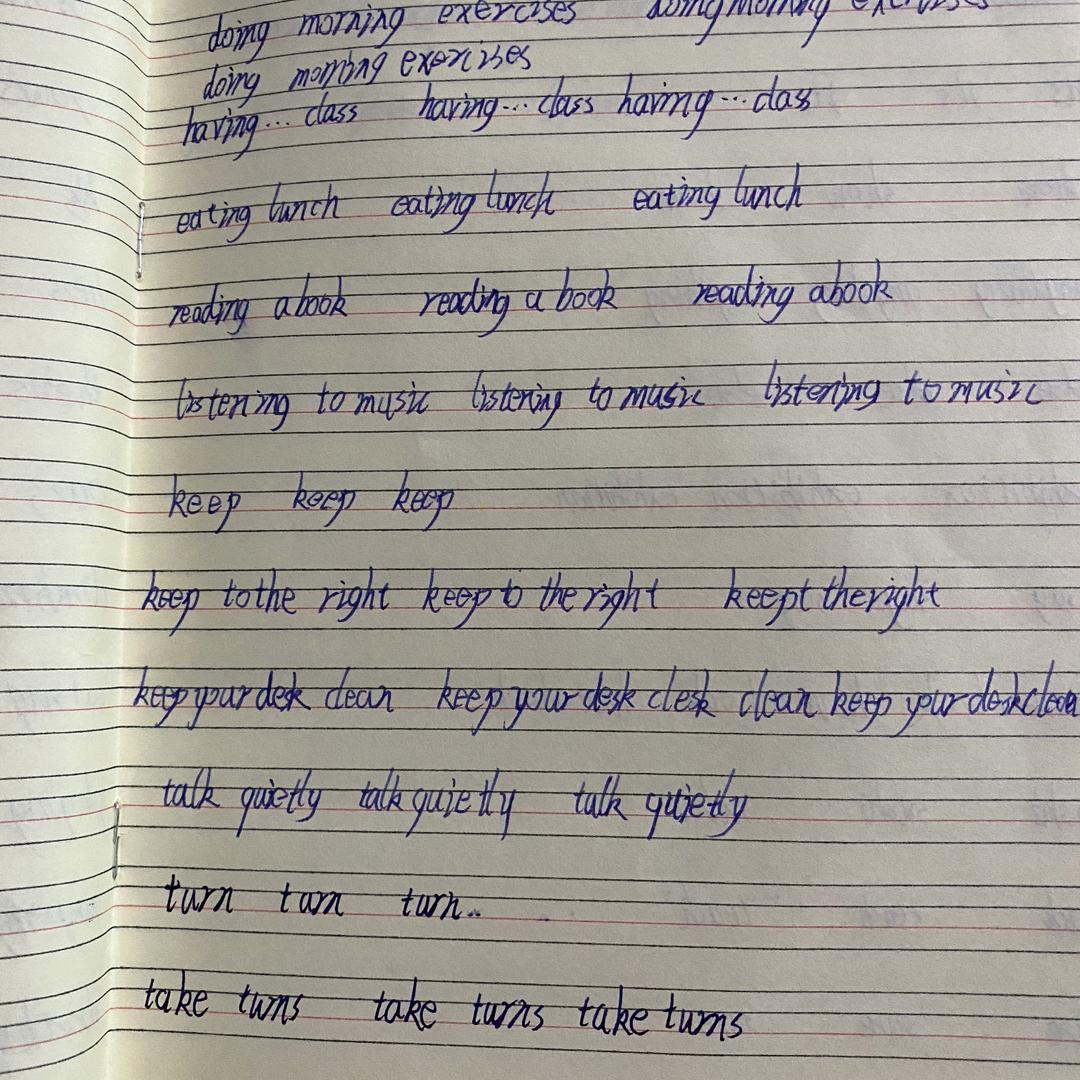 doing morning exercises doing morning exercises
doing morning exercises
having... class having... class having... class
eating lunch eating lunch eating lunch
reading a book reading a book reading a book
listening to music listening to music listening to music
keep keep keep
keep to the right keep to the right keept the right
keep your desk clean keep your desk clesk clean keep your desk clean
talk quietly talk quietly talk quietly
turn turn turn..
take turns take turns take turns